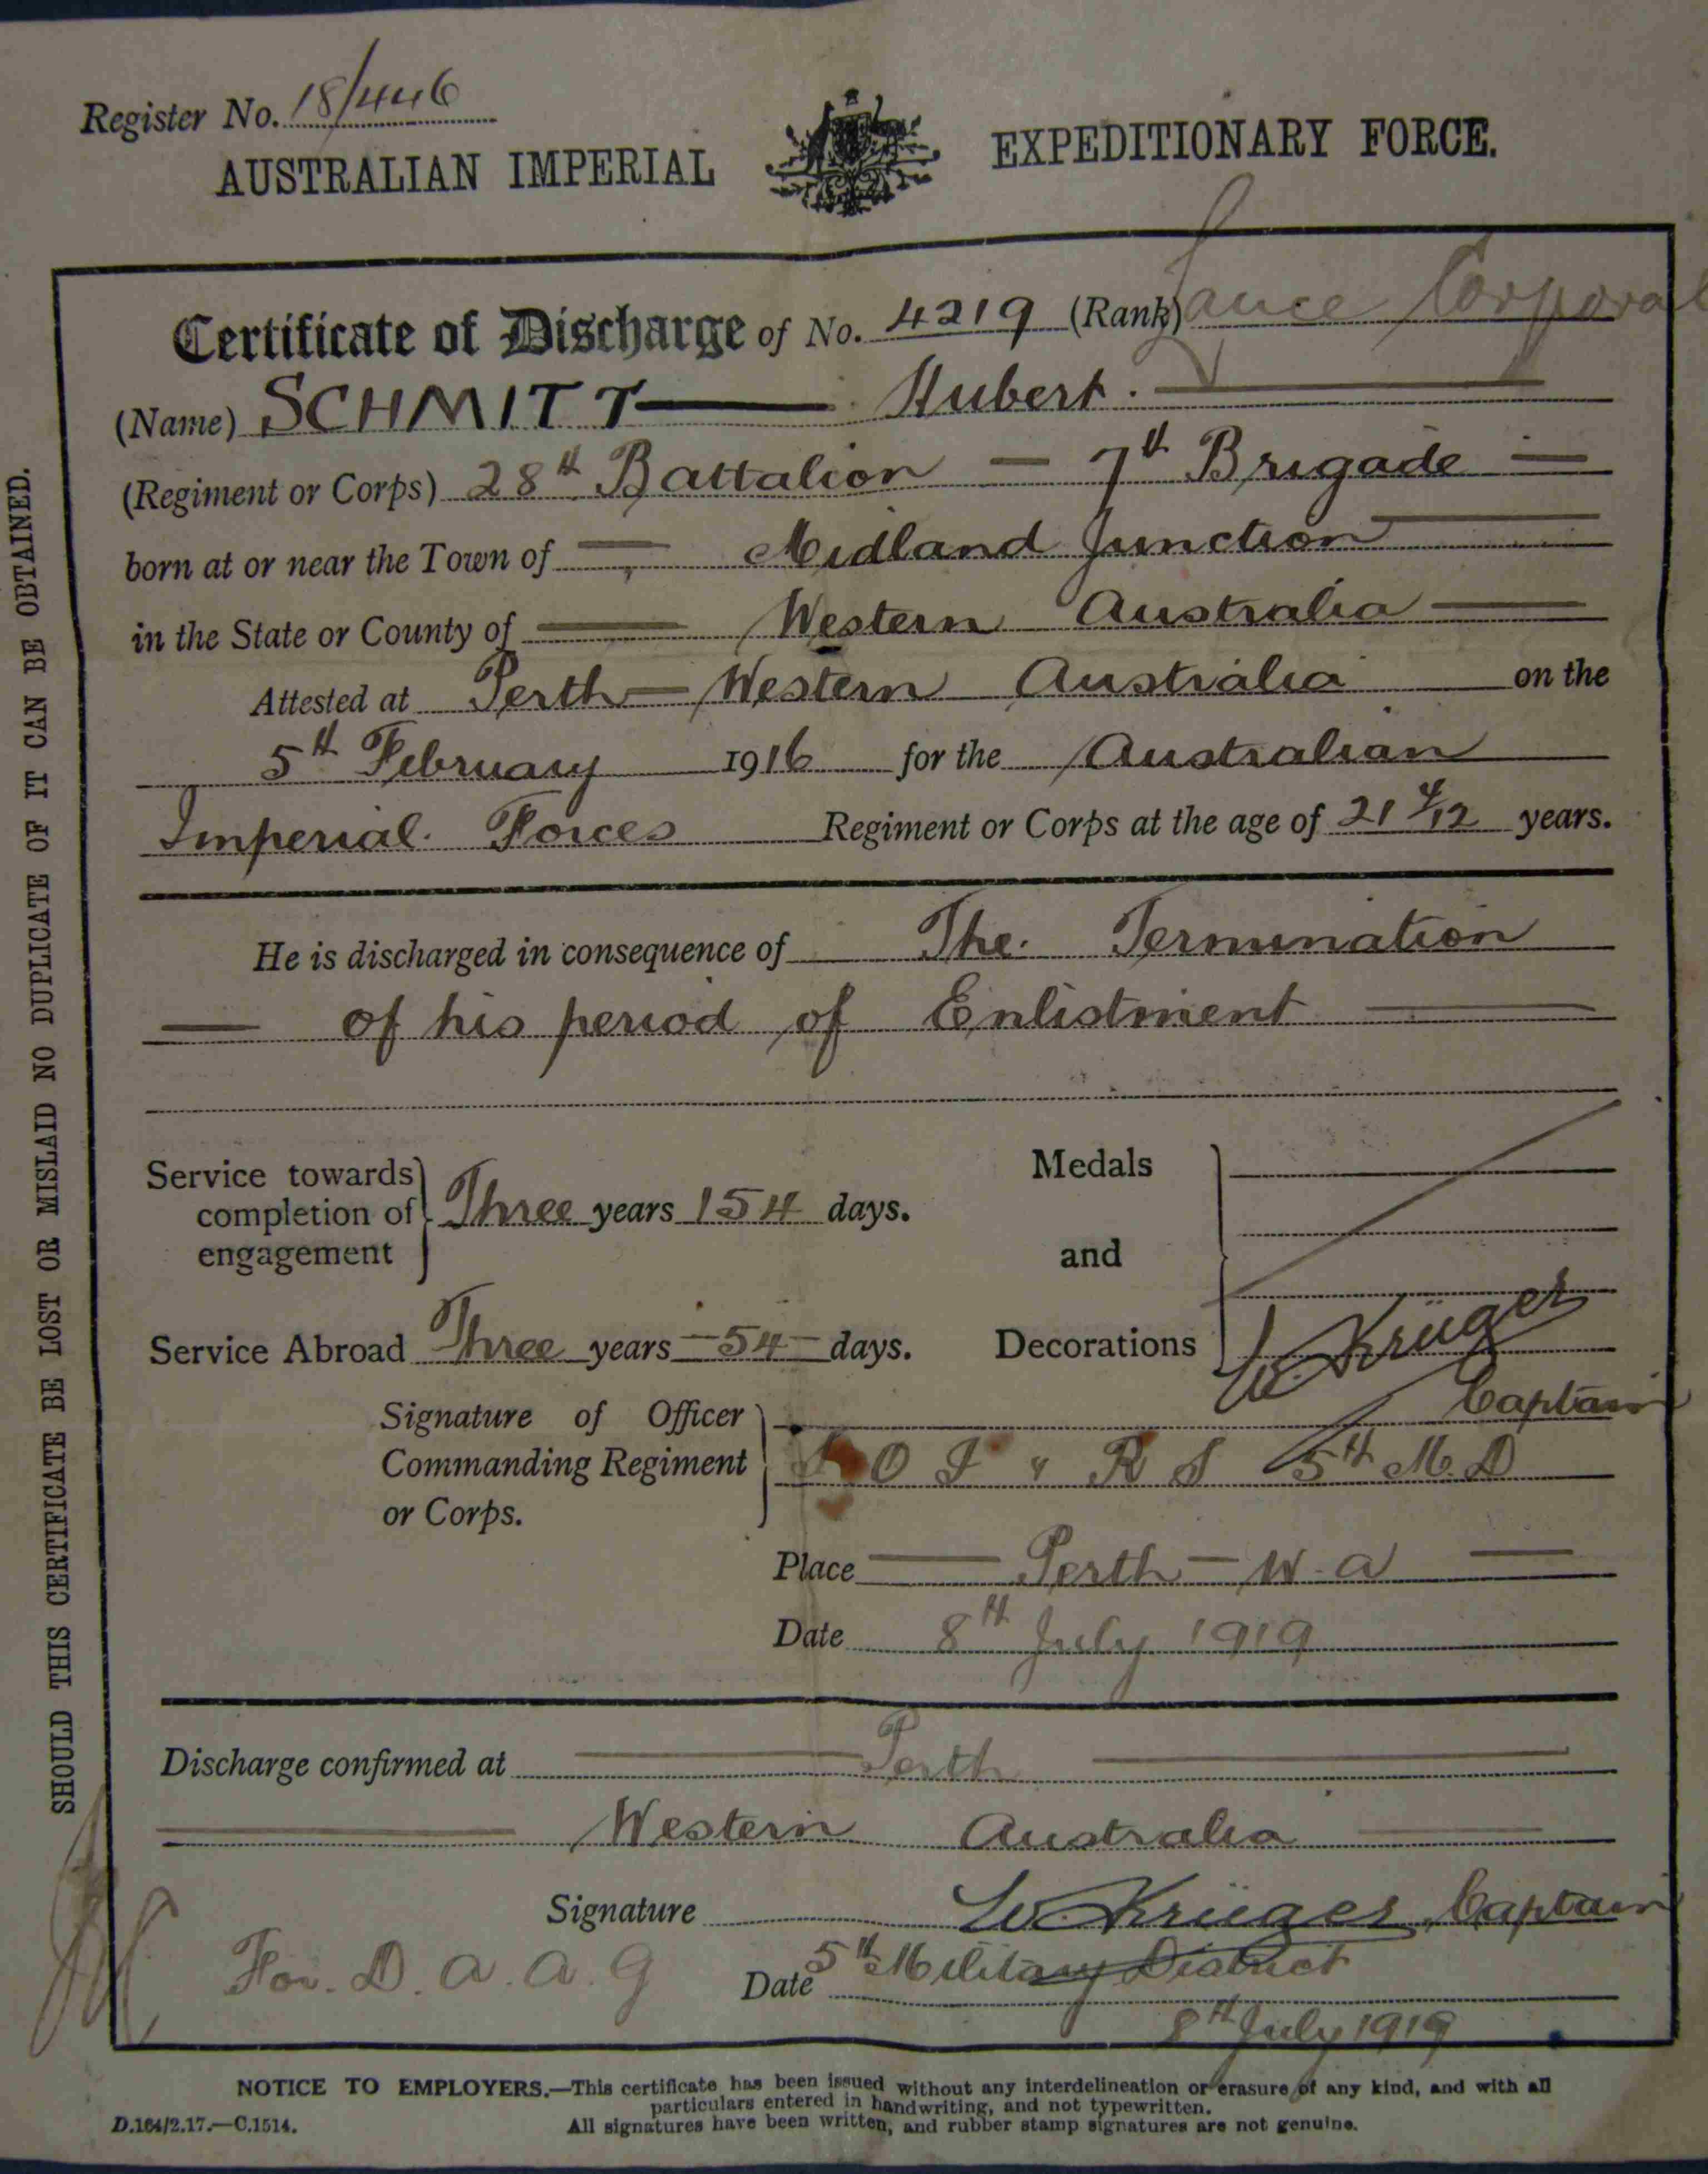 Register No. 18/446
AUSTRALIAN IMPERIAL EXPEDITIONARY FORCE.
Certificate of Discharge of No. 4219 (Rank) Lance Corporal
(Name) SCHMITT Hubert.
(Regiment or Corps) 28th Battalion — 7th Brigade —
born at or near the Town of — Midland Junction
in the State or County of — Western Australia —
Attested at Perth — Western Australia on the
5th February 1916 for the Australian
Imperial Forces Regiment or Corps at the age of 21 4/12 years.
He is discharged in consequence of The Termination
— of his period of Enlistment —
Service towards completion of engagement } Three years 154 days.
Medals and Decorations
Service Abroad Three years — 54 — days.
W. Krüger
Captain
Signature of Officer Commanding Regiment or Corps.
O I & R S 5th M.D
Place — Perth — W.A —
Date 8th July 1919
Discharge confirmed at — Perth —
— Western Australia —
Signature W. Krüger, Captain
For. D. A. A. G
5th Military District
Date
8th July 1919
NOTICE TO EMPLOYERS.—This certificate has been issued without any interdelineation or erasure of any kind, and with all
particulars entered in handwriting, and not typewritten.
D.164/2.17.—C.1514.
All signatures have been written, and rubber stamp signatures are not genuine.
SHOULD THIS CERTIFICATE BE LOST OR MISLAID NO DUPLICATE OF IT CAN BE OBTAINED.